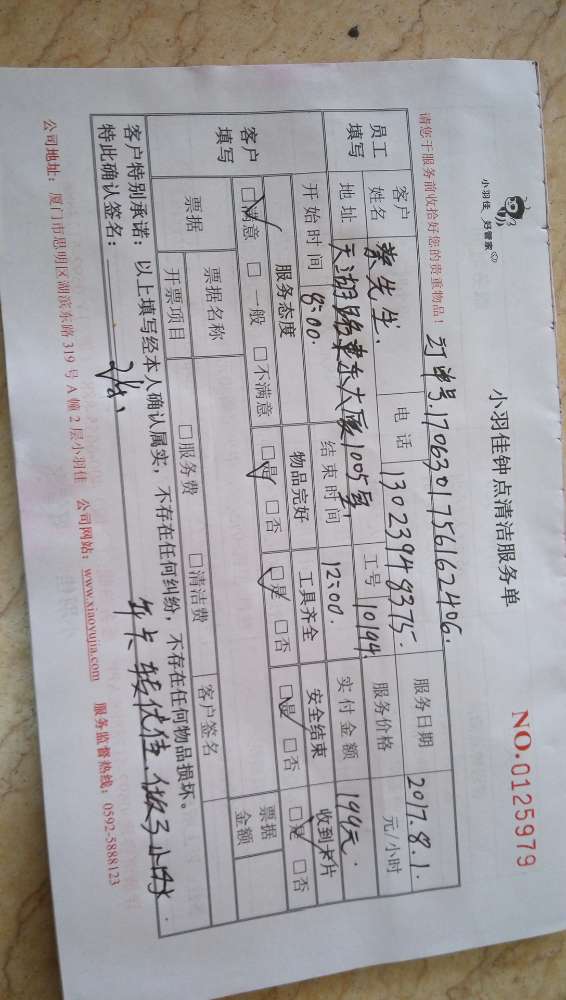 小羽佳 好管家
小羽佳钟点清洁服务单
NO.0125979
请您于服务前收拾好您的贵重物品！
订单号.1706301756162406.
员工填写
客户姓名 先生. 电话 13023948375. 服务日期 2017.8.1.
地址 天湖路 东大厦1005号 工号 1094. 服务价格 元/小时
开始时间 8:00. 结束时间 12:00. 实付金额 144元.
客户填写
服务态度 物品完好 工具齐全 安全结束 收到卡片
☑满意 □一般 □不满意 ☑是 □否 ☑是 □否 ☑是 □否 ☑是 □否
票据 票据名称 客户签名 票据金额
开票项目 □服务费 □清洁费
客户特别承诺：以上填写经本人确认属实，不存在任何纠纷，不存在任何物品损坏。
特此确认签名：
年卡转优佳.做了 小时.
公司地址：厦门市思明区湖滨东路319号A幢2层小羽佳 公司网站：www.xiaoyujia.com 服务监督热线：0592-5888123